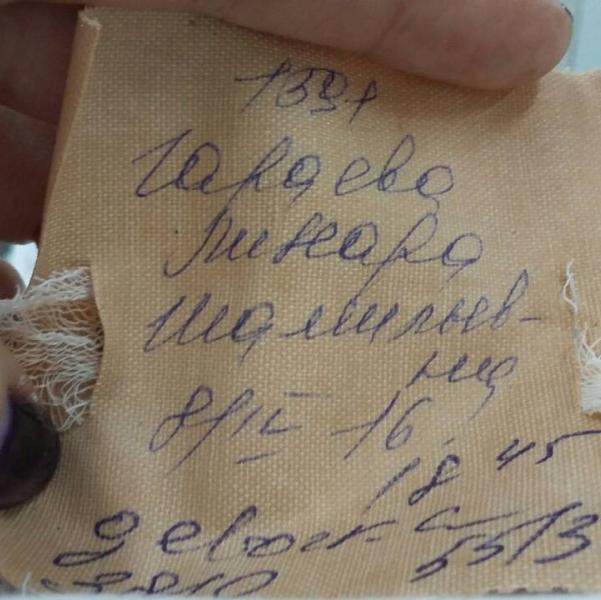 1591
Гараева
Линара
Шамильев-
на
8/IV - 16
18 45
девоч-
55/3